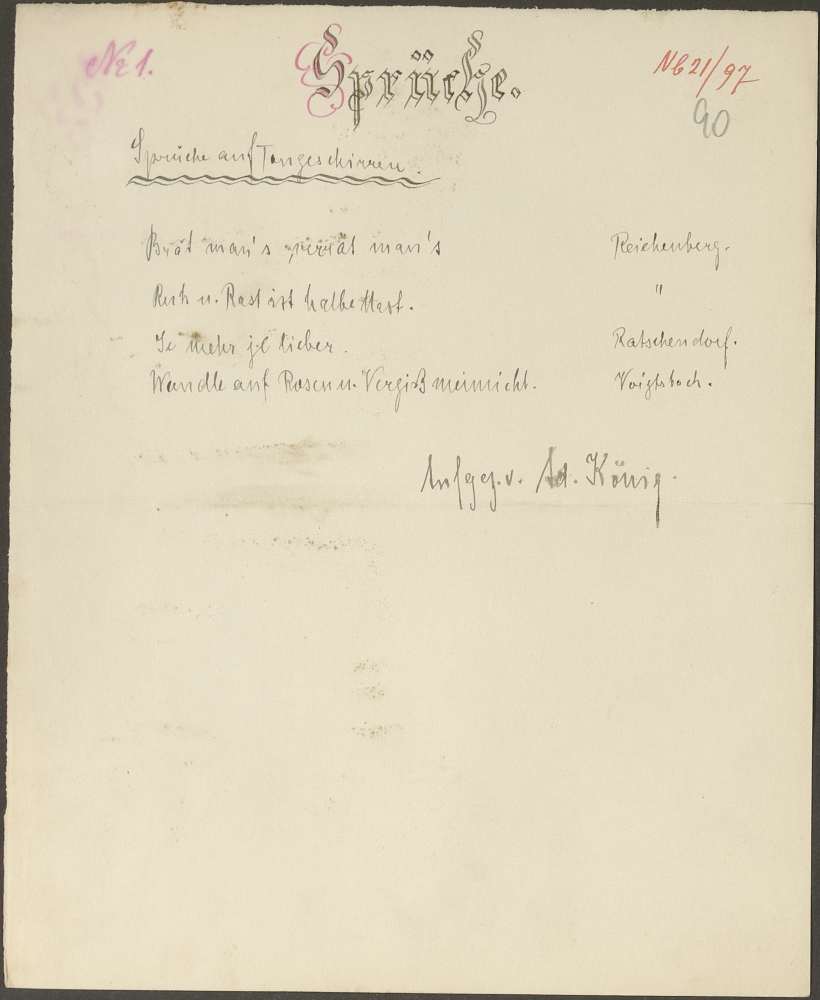 No 1.
Sprüche.
NB 21/97
90
Sprüche auf Tongeschirren.
Brät man's verrät man's Reichenberg.
Ruh u. Rast ist halbe Mast. "
Je mehr je lieber. Ratschendorf.
Wandle auf Rosen u. Vergißmeinnicht. Voigtsbach.
Aufgez. v. Ad. König.